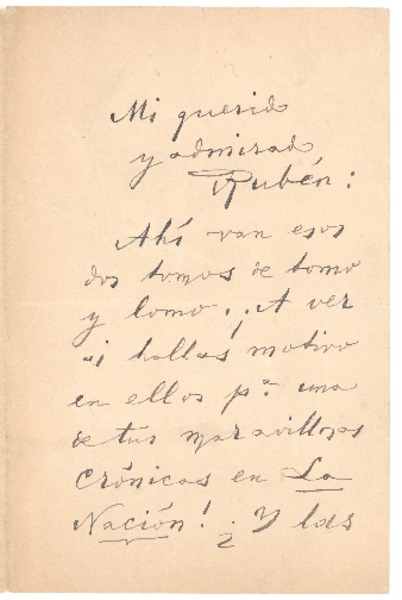 Mi querido
y admirado
Rubén:
Ahí van esos
dos tomos de tomo
y lomo... ¡A ver
si hallas motivo
en ellos pª. una
de tus maravillosas
crónicas en La
Nación! ¿Y las